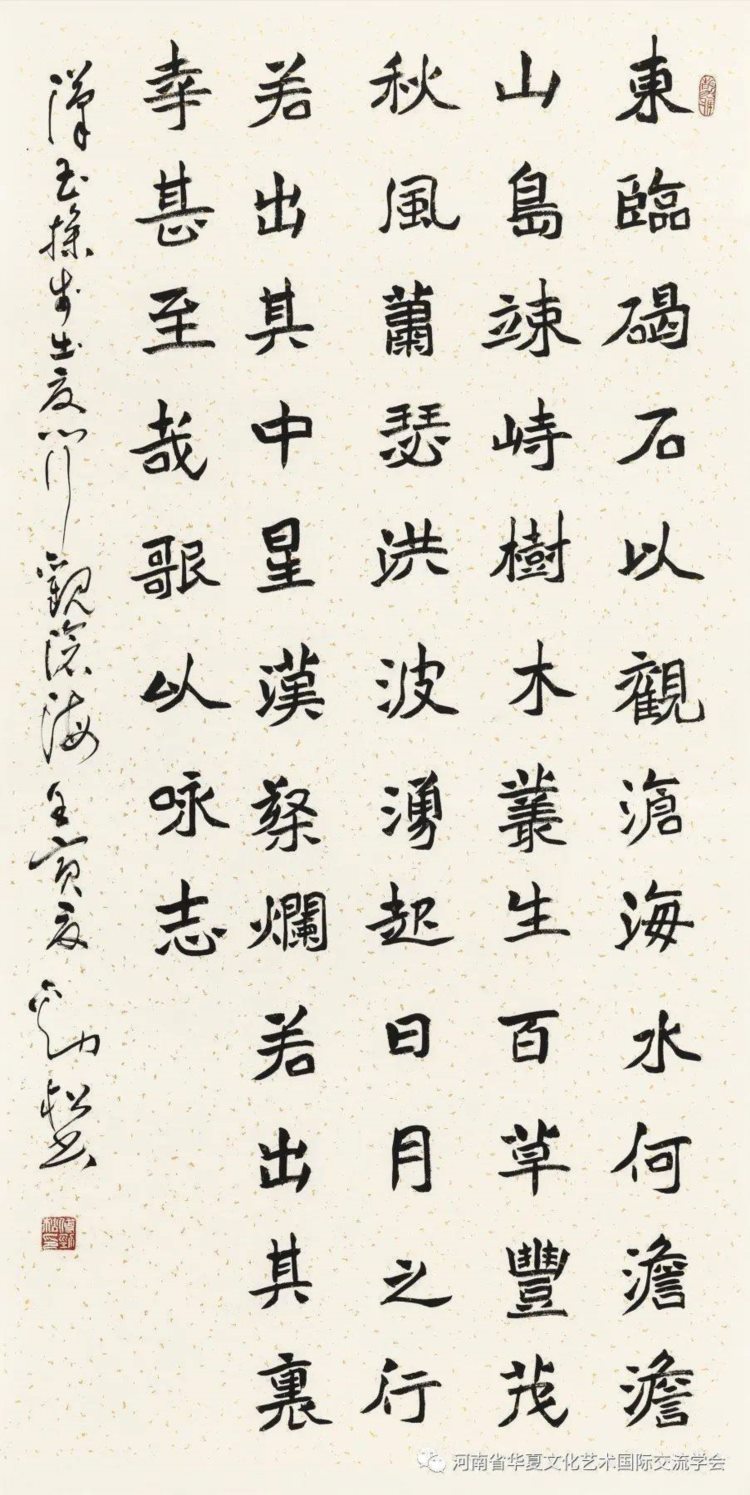 東臨碣石以觀滄海水何澹澹
山島竦峙樹木叢生百草豐茂
秋風蕭瑟洪波湧起日月之行
若出其中星漢粲爛若出其裏
幸甚至哉歌以咏志
漢曹操步出夏門行觀滄海壬寅夏勁松書
河南省华夏文化艺术国际交流学会